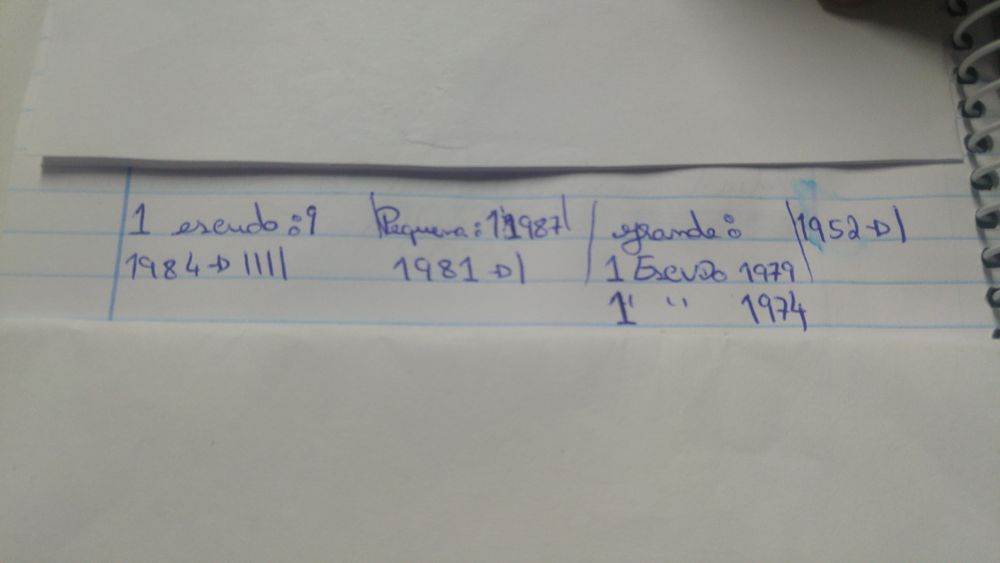 1 escudo: 9 |Pequena: 1 1987| | grande: |1952→|
1984→|||| 1981→| 1 Escudo 1979|
1 " 1974